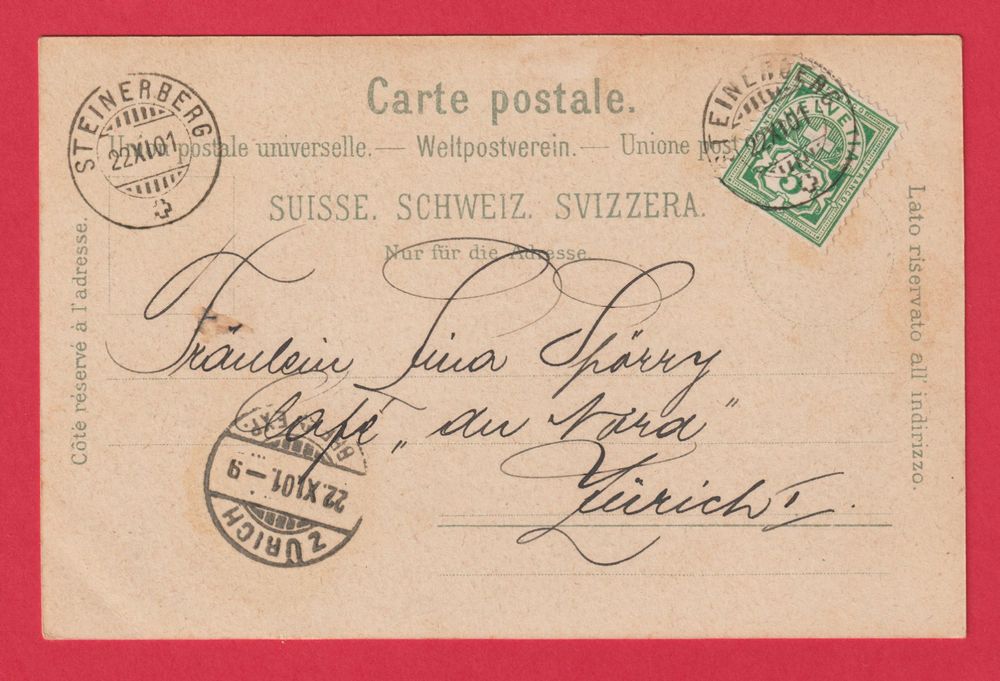 Carte postale.
Union postale universelle. — Weltpostverein. — Unione post
SUISSE. SCHWEIZ. SVIZZERA.
Nur für die Adresse.
Côté réservé à l'adresse.
Lato riservato all' indirizzo.
STEINERBERG
22.XI.01
STEINERBERG
22.XI.01
HELVETIA
FRANCO
5
Fräulein Lina Spörry
Café „du Nord"
Zürich I
ZÜRICH
22.XI.01.–9